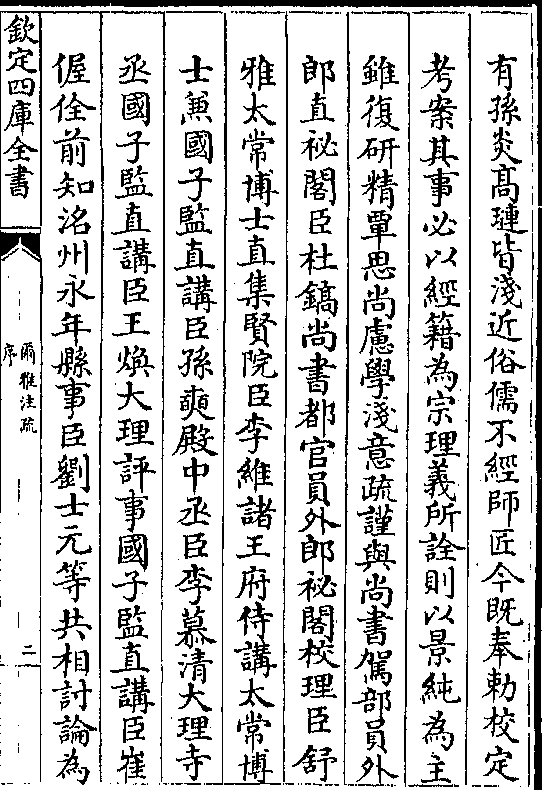 有孫炎髙璉皆淺近俗儒不經師匠今旣奉勅校定
考案其事必以經籍為宗理義所詮則以景純為主
雖復研精覃思尚慮學淺意疏謹與尚書駕部員外
郎直祕閣臣杜鎬尚書都官員外郎祕閣校理臣舒
雅太常博士直集賢院臣李維諸王府侍講太常博
士兼國子監直講臣孫奭殿中丞臣李慕清大理寺
丞國子監直講臣王煥大理評事國子監直講臣崔
偓佺前知洺州永年縣事臣劉士元等共相討論為
欽定四庫全書
爾雅注疏
序
二